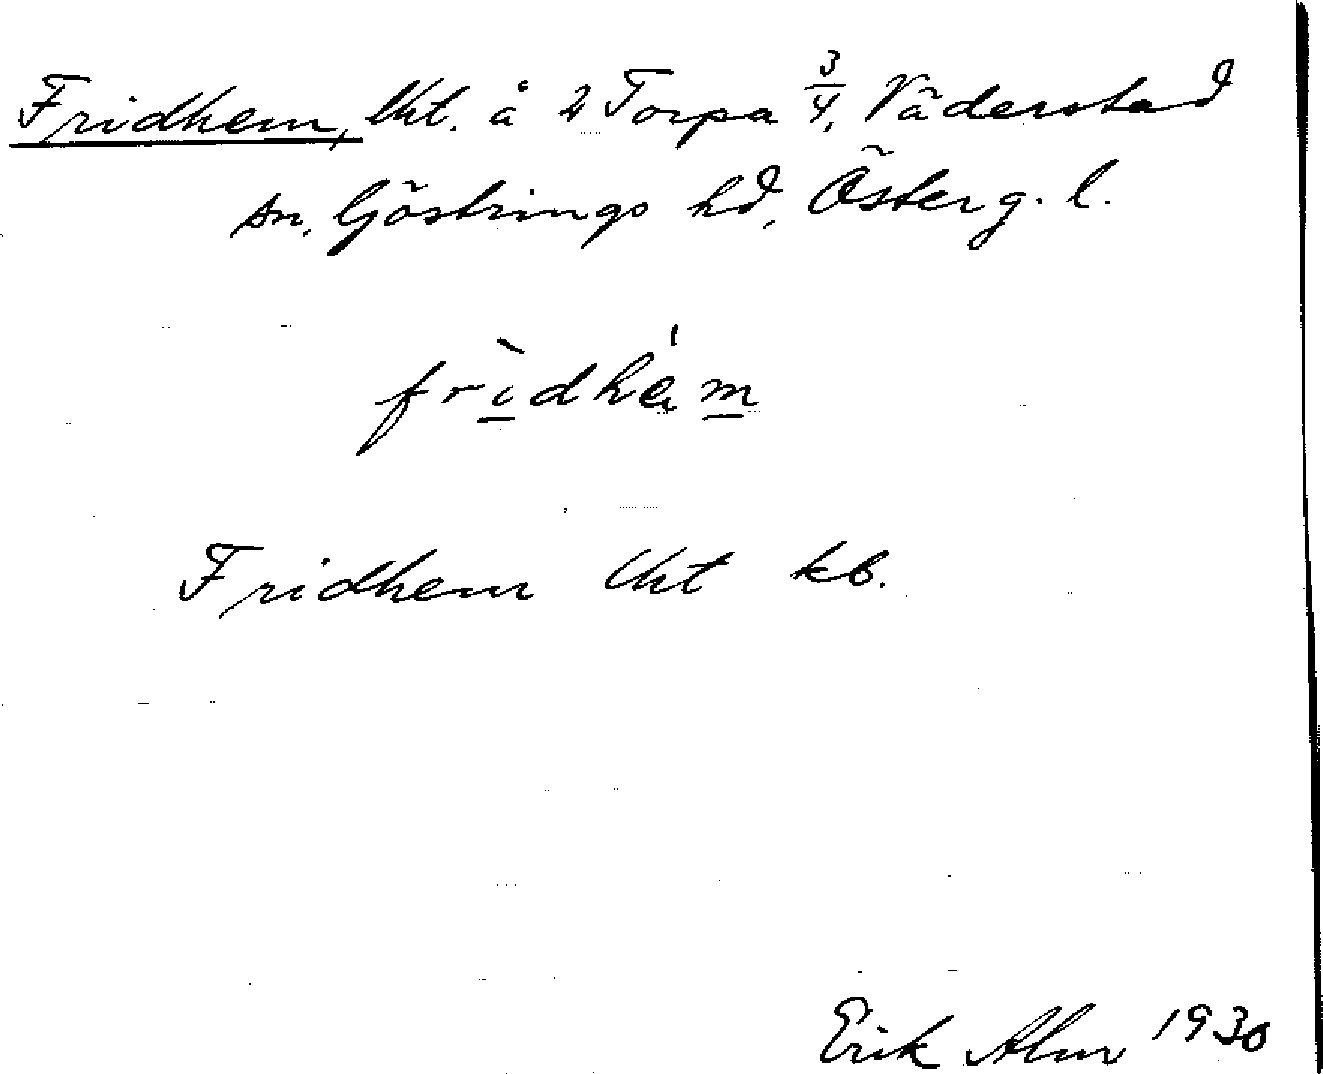 Fridhem, lht. å 2 Torpa 3/4, Väderstad
sn, Göstrings hd, Österg. l.
frìdhém
Fridhem lht kb.
Erik Alm 1930